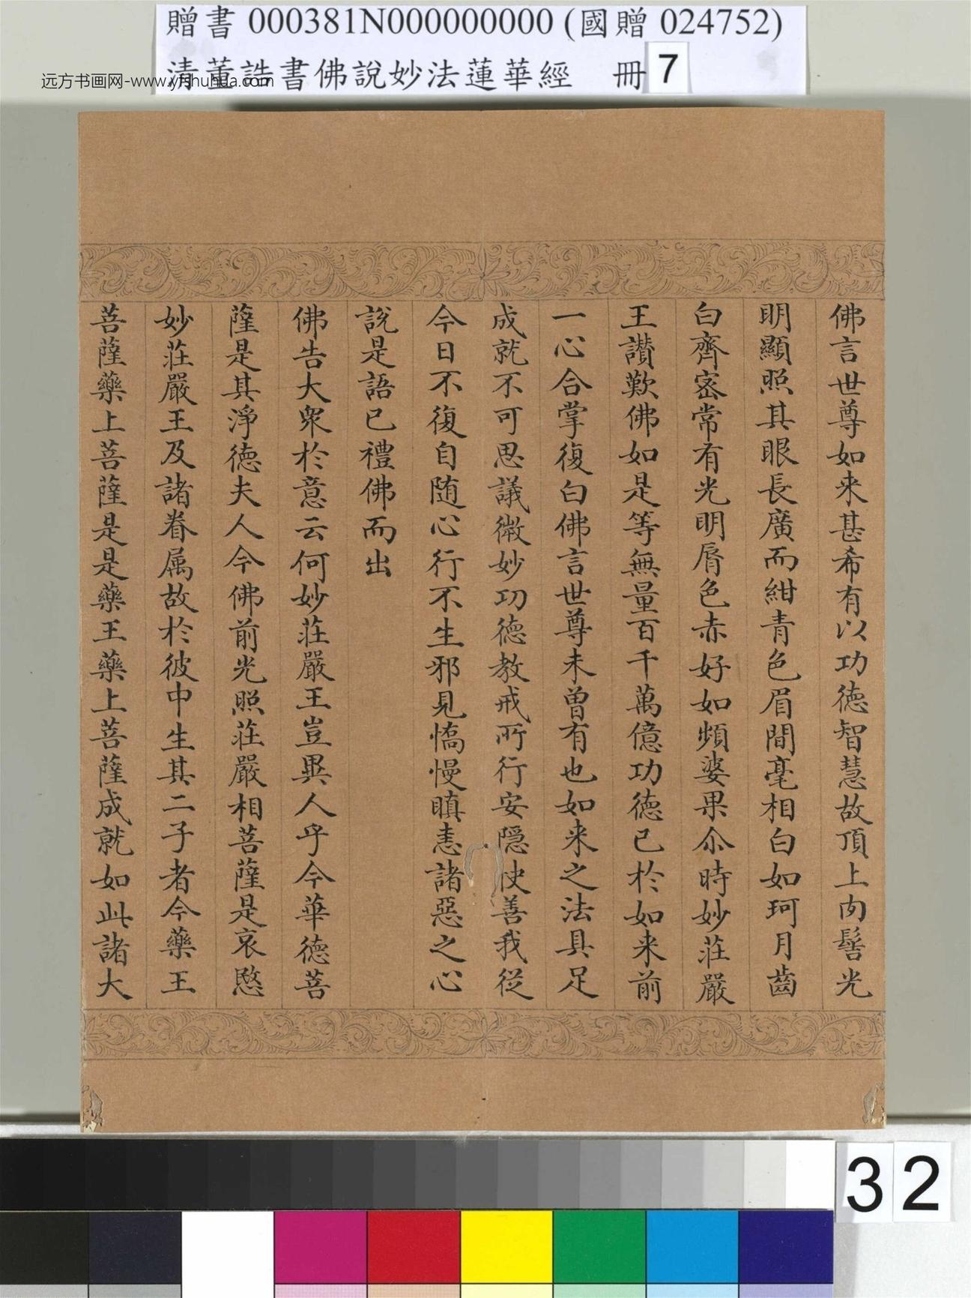 贈書 000381N000000000 (國贈 024752)
清董誥書佛說妙法蓮華經 冊 7
远方书画网-www.yfshuhua.com
佛言世尊如来甚希有以功德智慧故頂上肉髻光
明顯照其眼長廣而紺青色眉間毫相白如珂月齒
白齊密常有光明脣色赤好如頻婆果尒時妙莊嚴
王讃歎佛如是等無量百千萬億功德已於如来前
一心合掌復白佛言世尊未曾有也如来之法具足
成就不可思議微妙功德教戒所行安隱快善我從
今日不復自随心行不生邪見憍慢瞋恚諸惡之心
說是語已禮佛而出
佛告大衆於意云何妙莊嚴王豈異人乎今華德菩
薩是其淨德夫人今佛前光照莊嚴相菩薩是哀愍
妙莊嚴王及諸眷属故於彼中生其二子者今藥王
菩薩藥上菩薩是是藥王藥上菩薩成就如此諸大
32